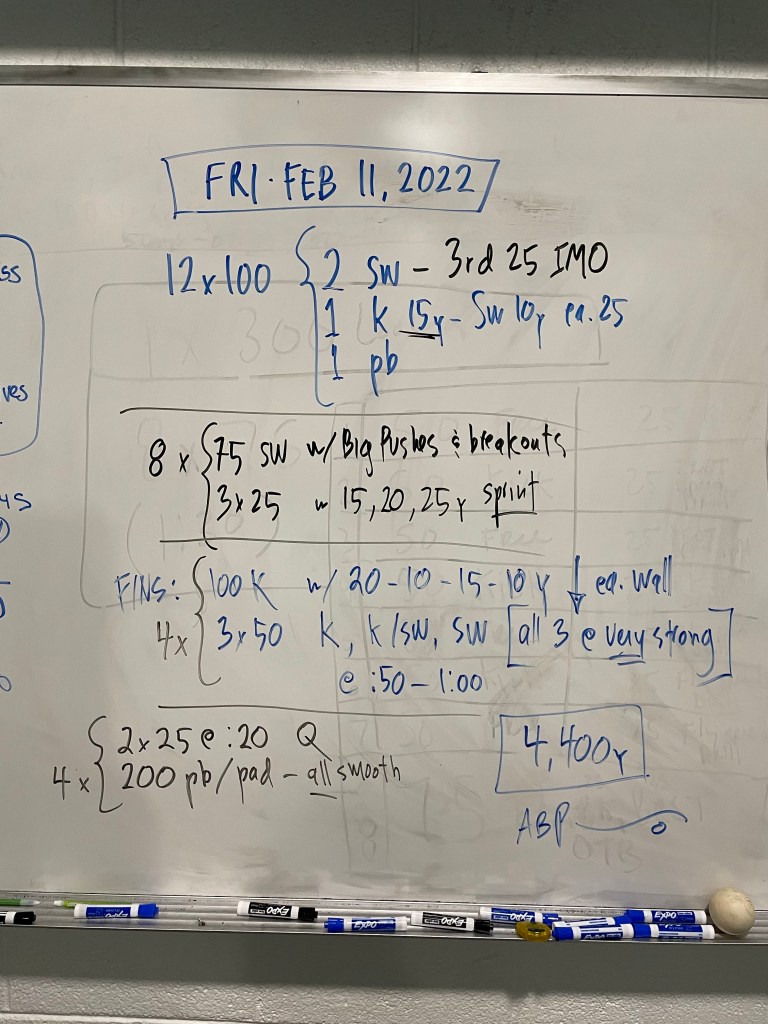 FRI. FEB 11, 2022
12x100 2 SW - 3rd 25 IMO
1 K 15y - SW 10y ea. 25
1 pb
8 x 75 SW w/ Big Pushes & breakouts
3x25 w 15, 20, 25y sprint
FINS: 100 K w/ 20-10-15-10 Y ↓ ea. wall
4x 3x50 K, K/SW, SW [all 3 @ very strong]
@ :50 - 1:00
2x25 @ :20 Q
4x 200 pb/pad - all smooth
4,400y
ABP
ss
ves
EXPO
EXPO
EXPO
EXPO
EXPO
EXPO